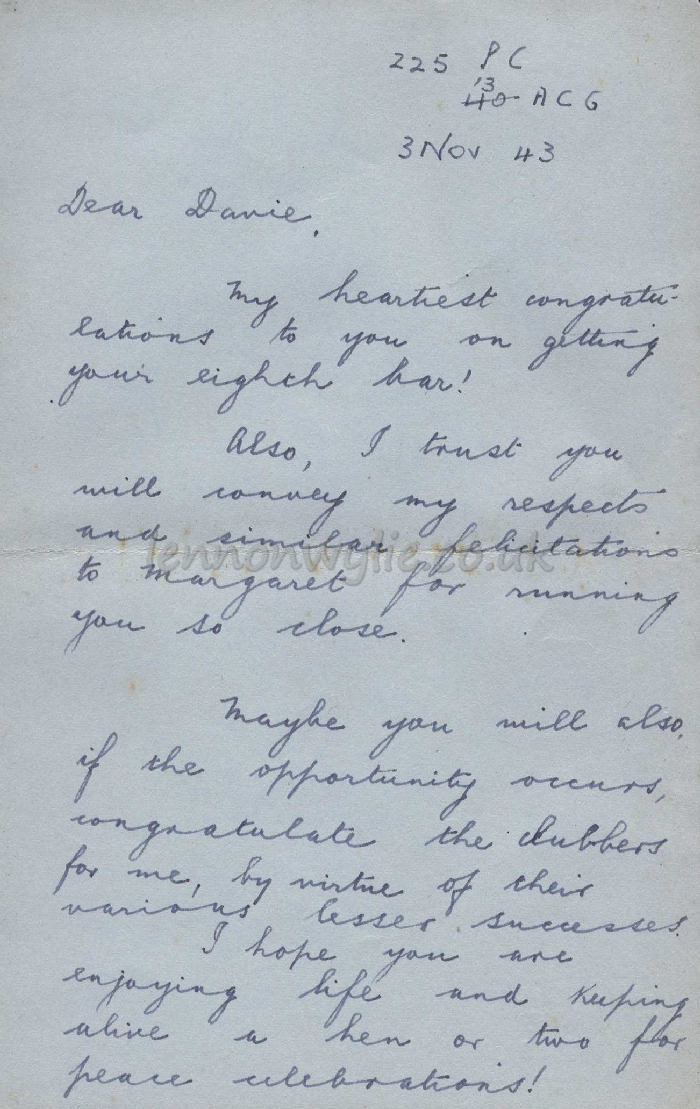 225 PC
13
40 ACG
3 Nov 43
Dear Davie,
My heartiest congratu-
lations to you on getting
your eighth bar!
Also, I trust you
will convey my respects
and similar felicitations
lennonwylie.co.uk
to Margaret for running
you so close.
Maybe you will also,
if the opportunity occurs,
congratulate the clubbers
for me, by virtue of their
various lesser successes.
I hope you are
enjoying life and keeping
alive a hen or two for
peace celebrations!